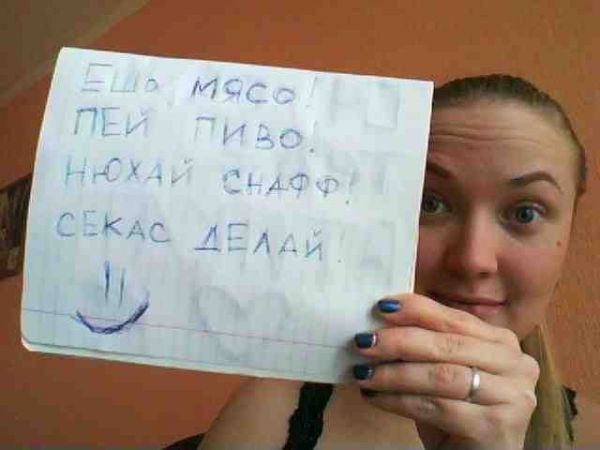 ЕШЬ МЯСО!
ПЕЙ ПИВО!
НЮХАЙ СНАФФ!
СЕКАС ДЕЛАЙ!